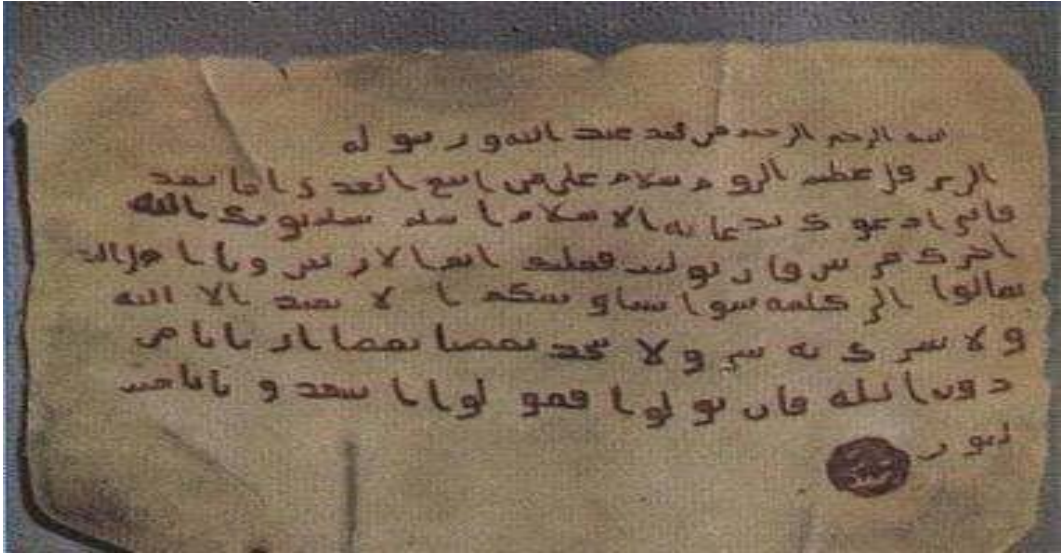 الله الرحمن الرحيم من محمد عبد الله و رسوله
الى هرقل عظيم الروم سلام على من اتبع الهدى اما بعد
فانى ادعوك بدعاية الاسلام اسلم تسلم يوتك الله
اجرك مرتين فان توليت فعليك اثم الاريسين ويا اهل
تعالوا الى كلمة سوا بيننا وبينكم ا لا نعبد الا الله
ولا نشرك به ولا يتخذ بعضنا بعضا اربابا من
دون الله فان تولوا فقولوا اشهدوا بانا